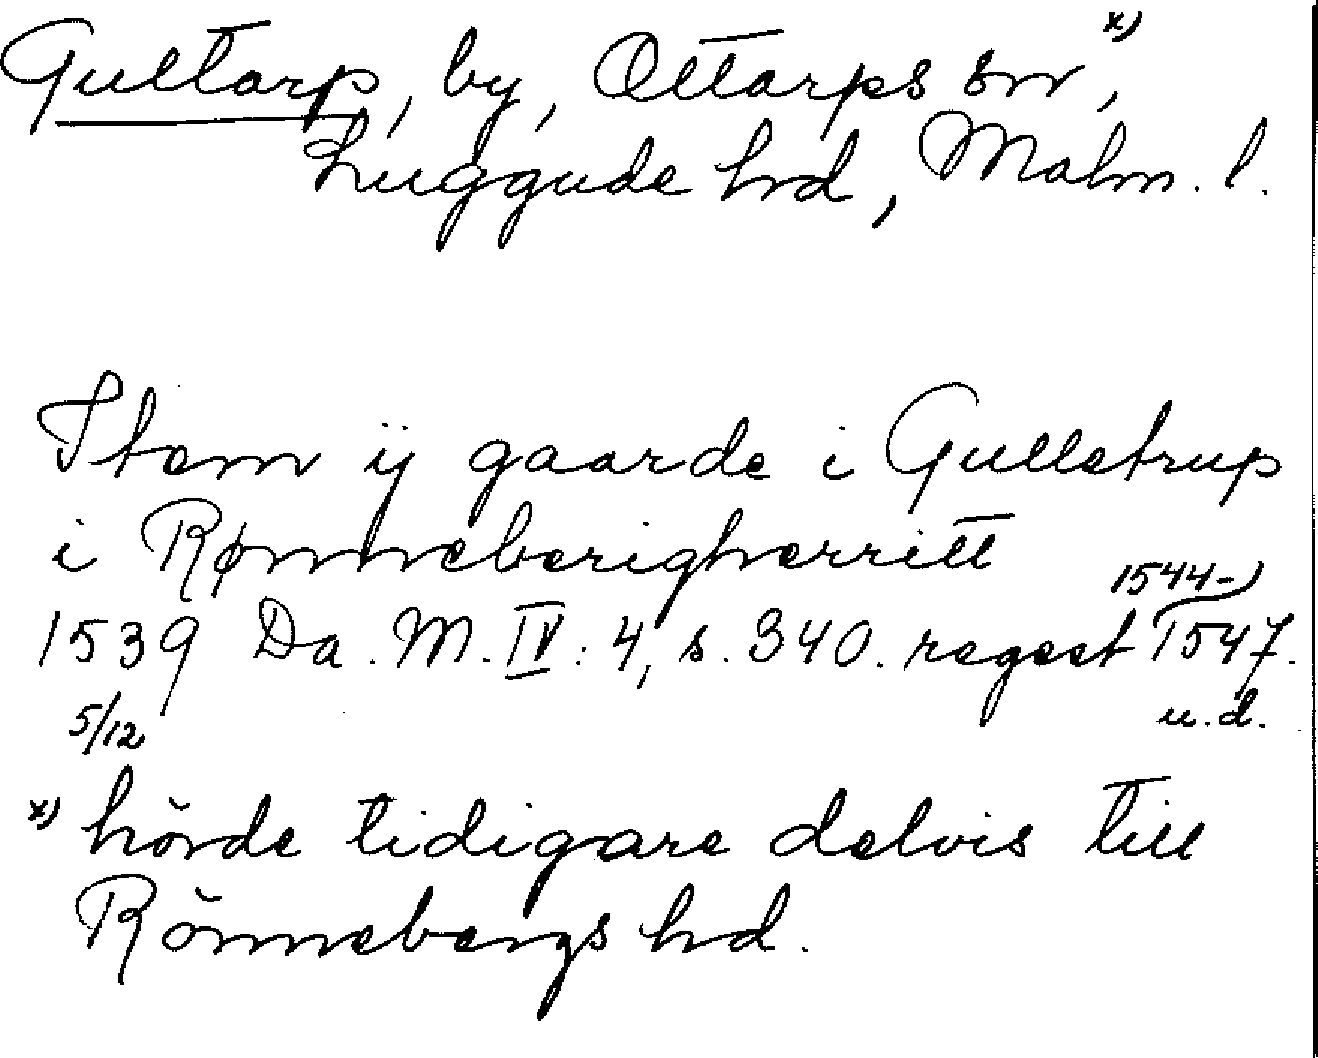 Gultarp, by, Ottarps sn x),
Luggude hd, Malm. l.
Item ij gaarde i Gulletrup
i Rønneberigherritt
1544-)
1539 Da. M. IV: 4, s. 340. regest 1547.
5/12 u.d.
x) hörde tidigare delvis till
Rönnebergs hd.